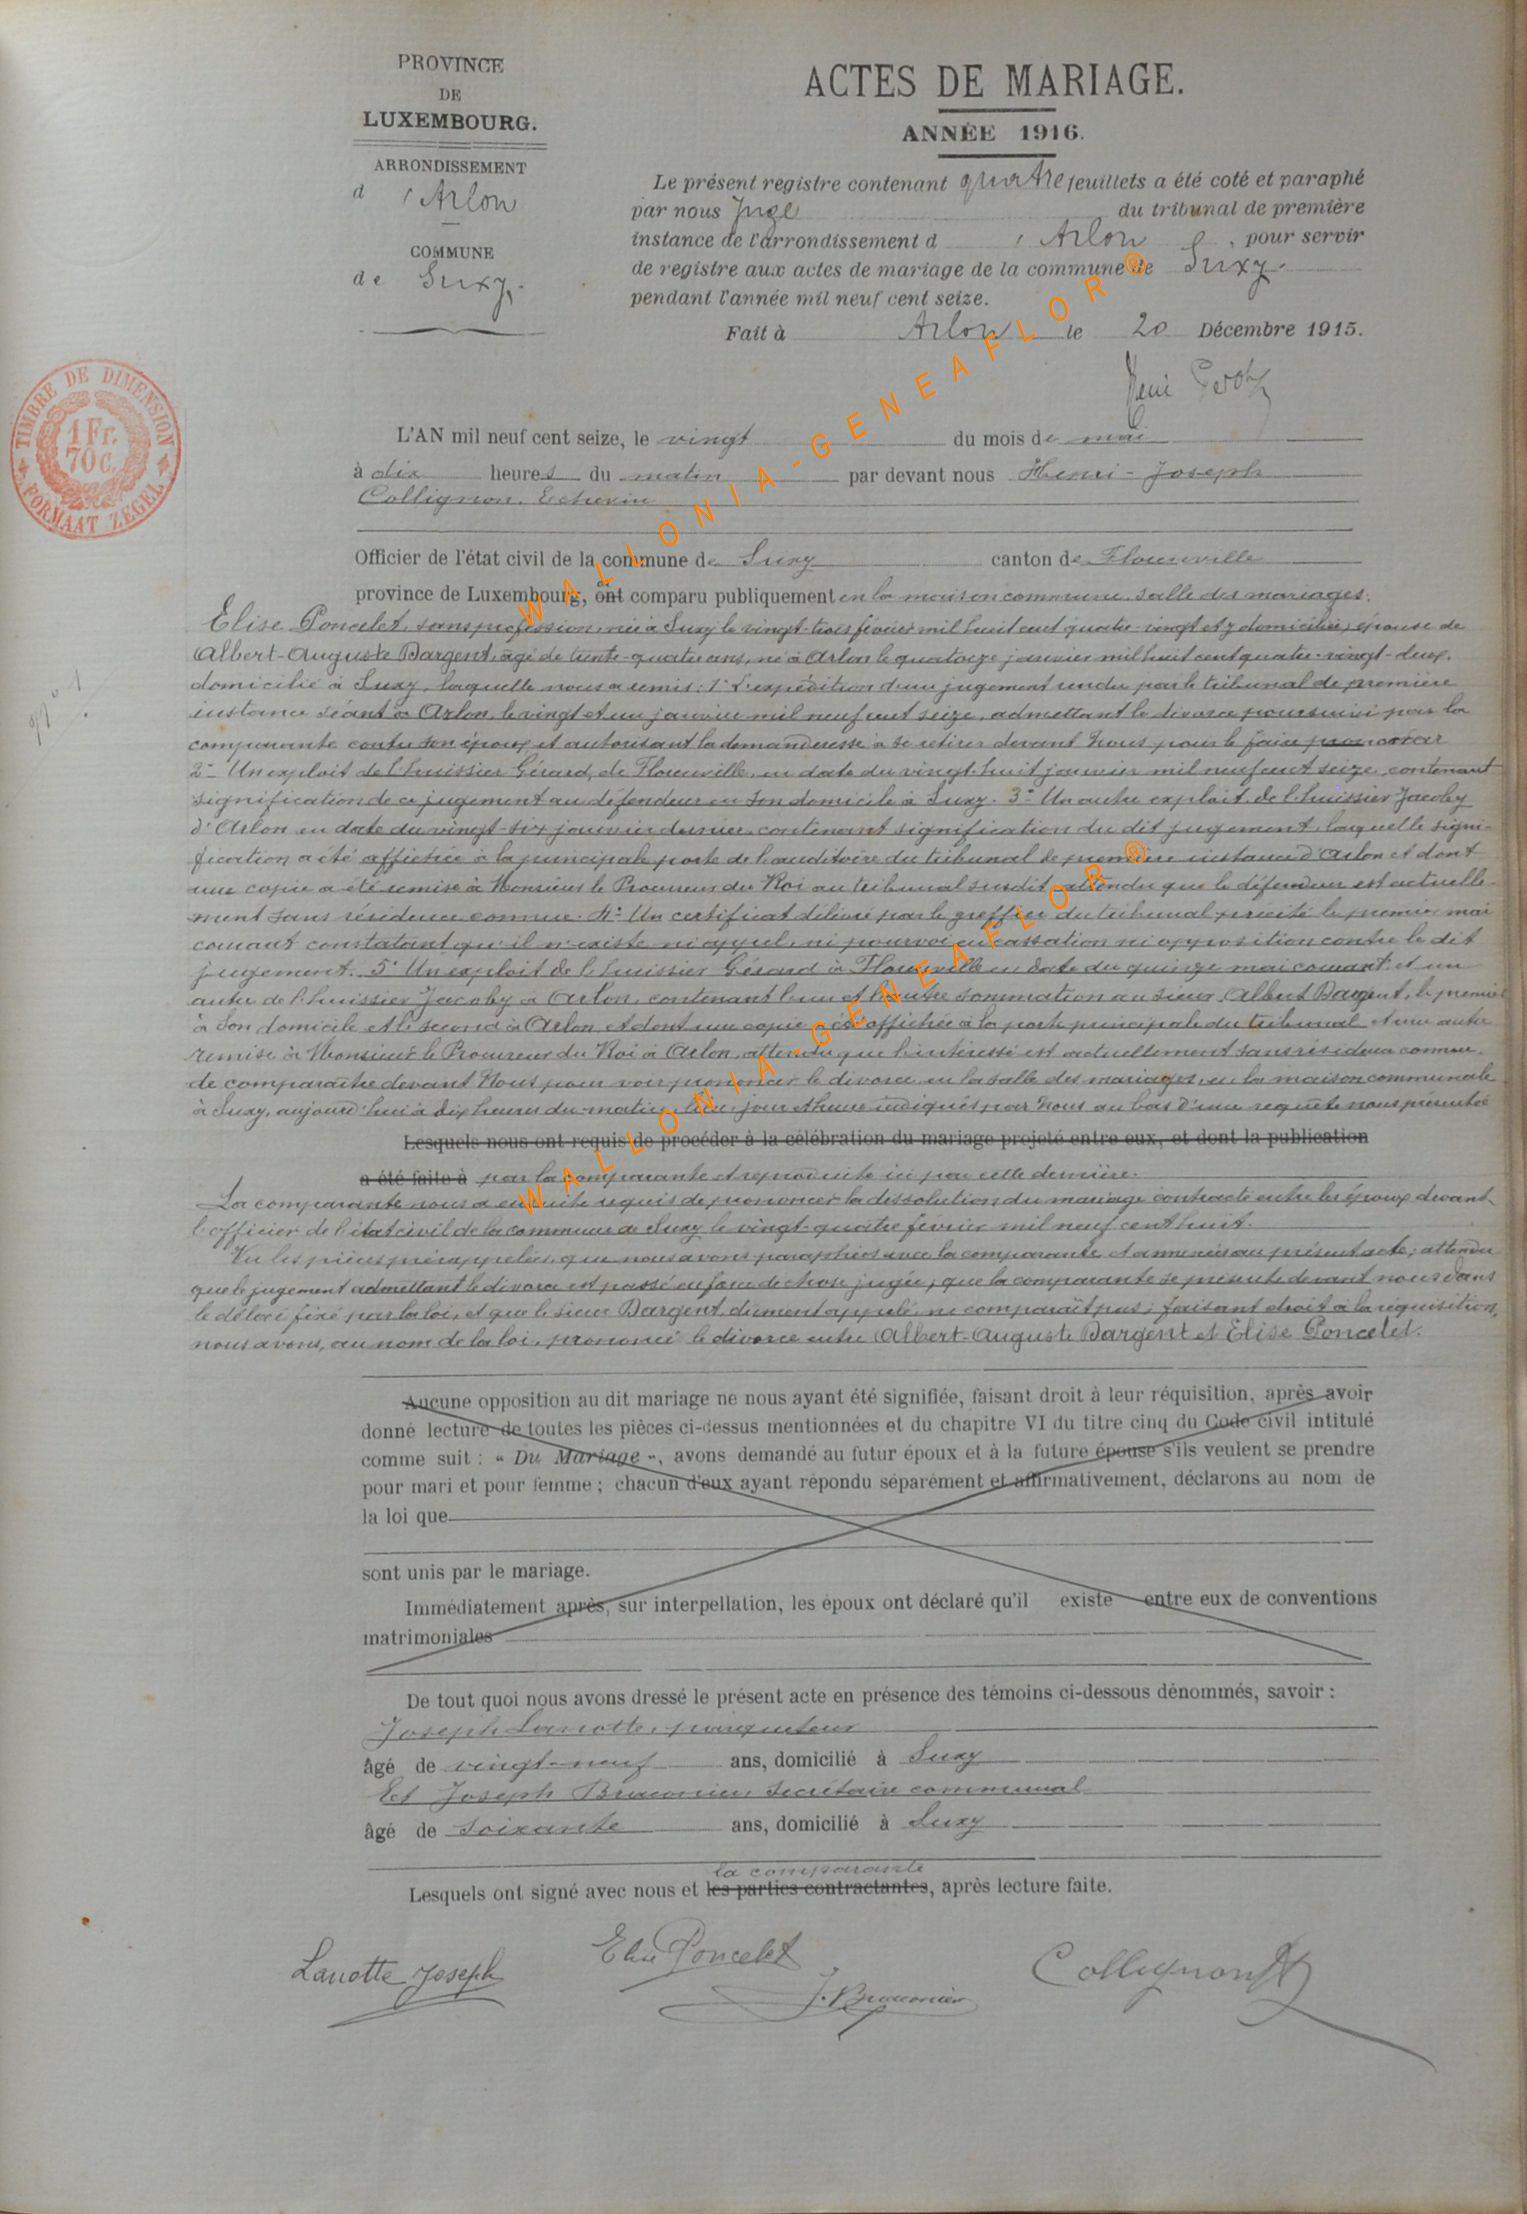 PROVINCE
DE
LUXEMBOURG.
ARRONDISSEMENT
d'Arlon
COMMUNE
de Suxy.
TIMBRE DE DIMENSION
1 Fr.
70 c.
FORMAAT ZEGEL
N° 1
ACTES DE MARIAGE.
ANNÉE 1916.
Le présent registre contenant quatre feuillets a été coté et paraphé
par nous Juge du tribunal de première
instance de l'arrondissement d'Arlon, pour servir
de registre aux actes de mariage de la commune de Suxy.
pendant l'année mil neuf cent seize.
Fait à Arlon le 20 Décembre 1915.
L'AN mil neuf cent seize, le vingt du mois de mai
à dix heures du matin par devant nous Henri-Joseph
Collignon, Echevin
Officier de l'état civil de la commune de Suxy canton de Florenville
province de Luxembourg, a ont comparu publiquement en la maison commune, salle des mariages.
Elise Poncelet, sans profession, née à Suxy le vingt-trois février mil huit cent quatre-vingt et domiciliée, épouse de
Albert-Auguste Dargent, âgé de trente-quatre ans, né à Arlon le quatorze janvier mil huit cent quatre-vingt-deux,
domicilié à Suxy, laquelle nous a remis: 1° L'expédition d'un jugement rendu par le tribunal de première
instance séant à Arlon, le vingt et un janvier mil neuf cent seize, admettant le divorce poursuivi par la
comparante contre son époux et autorisant la demanderesse à se retirer devant Nous pour le faire prononcer
2° Un exploit de l'huissier Gérard, de Florenville, en date du vingt-huit janvier mil neuf cent seize, contenant
signification de ce jugement au défendeur en son domicile à Suxy. 3° Un autre exploit de l'huissier Jacoby
d'Arlon en date du vingt-six janvier dernier, contenant signification du dit jugement, laquelle signi-
fication a été affichée à la principale porte de l'auditoire du tribunal de première instance d'Arlon et dont
une copie a été remise à Monsieur le Procureur du Roi au tribunal susdit, attendu que le défendeur est actuelle-
ment sans résidence connue. 4° Un certificat délivré par le greffier du tribunal précité le premier mai
courant constatant qu'il n'existe ni appel, ni pourvoi en cassation ni opposition contre le dit
jugement. 5° Un exploit de l'huissier Gérard à Florenville en date du quinze mai courant et un
autre de l'huissier Jacoby à Arlon, contenant l'un et l'autre sommation au sieur Albert Dargent, le premier
à son domicile et le second à Arlon et dont une copie a été affichée à la porte principale du tribunal et une autre
remise à Monsieur le Procureur du Roi à Arlon, attendu que l'intéressé est actuellement sans résidence connue,
de comparaître devant Nous pour voir prononcer le divorce, en la salle des mariages, en la maison communale
à Suxy, aujourd'hui à dix heures du matin, jour et heure indiqués par Nous au bas d'une requête nous présentée
Lesquels nous ont requis de procéder à la célébration du mariage projeté entre eux, et dont la publication
a été faite à par la comparante et reproduite ici par cette dernière.
La comparante nous a ensuite requis de prononcer la dissolution du mariage contracté entre les époux devant
l'officier de l'état civil de la commune de Suxy le vingt-quatre février mil neuf cent huit.
Vu les pièces prérappelées, que nous avons paraphées avec la comparante et annexées au présent acte; attendu
que le jugement admettant le divorce est passé en force de chose jugée; que la comparante se présente devant nous dans
le délai fixé par la loi, et que le sieur Dargent, dûment appelé, ne comparaît pas; faisant droit à la réquisition,
nous avons, au nom de la loi, prononcé le divorce entre Albert-Auguste Dargent et Elise Poncelet.
Aucune opposition au dit mariage ne nous ayant été signifiée, faisant droit à leur réquisition, après avoir
donné lecture de toutes les pièces ci-dessus mentionnées et du chapitre VI du titre cinq du Code civil intitulé
comme suit : « Du Mariage », avons demandé au futur époux et à la future épouse s'ils veulent se prendre
pour mari et pour femme ; chacun d'eux ayant répondu séparément et affirmativement, déclarons au nom de
la loi que
sont unis par le mariage.
Immédiatement après, sur interpellation, les époux ont déclaré qu'il existe entre eux de conventions
matrimoniales
De tout quoi nous avons dressé le présent acte en présence des témoins ci-dessous dénommés, savoir :
Joseph Lanotte, parqueteur
âgé de vingt-neuf ans, domicilié à Suxy
Et Joseph Braconnier, secrétaire communal
âgé de soixante ans, domicilié à Suxy
la comparante
Lesquels ont signé avec nous et les parties contractantes, après lecture faite.
Lanotte Joseph
Elise Poncelet
J. Braconnier
Collignon H
WALLONIA-GENEAFLOR®
WALLONIA-GENEAFLOR®